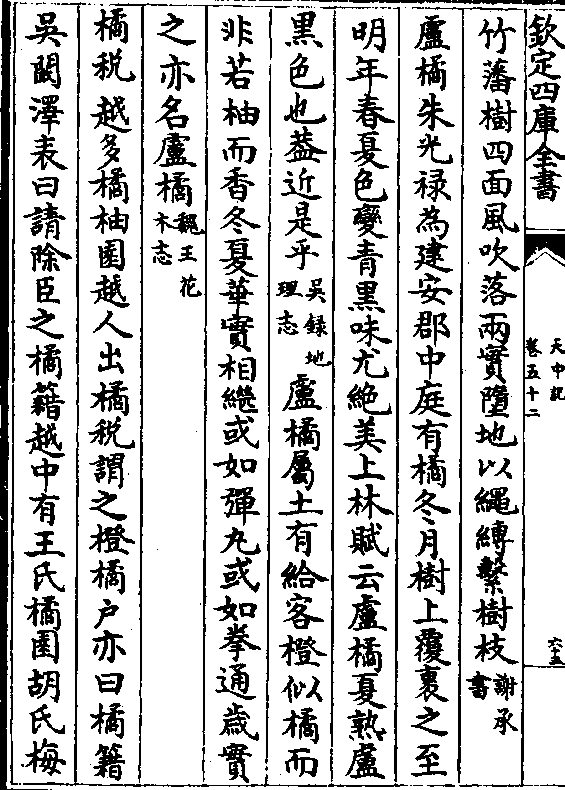 欽定四庫全書
天中記
卷五十二
六十五
竹藩樹四面風吹落兩實墮地以繩縛繫樹枝謝承書
盧橘朱光禄為建安郡中庭有橘冬月樹上覆裹之至
明年春夏色變青黒味尤絶美上林賦云盧橘夏熟盧
黒色也葢近是乎吳録地理志盧橘屬土有給客橙似橘而
非若柚而香冬夏華實相繼或如彈丸或如拳通歲實
之亦名盧橘魏王花木志
橘税 越多橘柚園越人出橘税謂之橙橘户亦曰橘籍
吳闞澤表曰請除臣之橘籍越中有王氏橘園胡氏梅